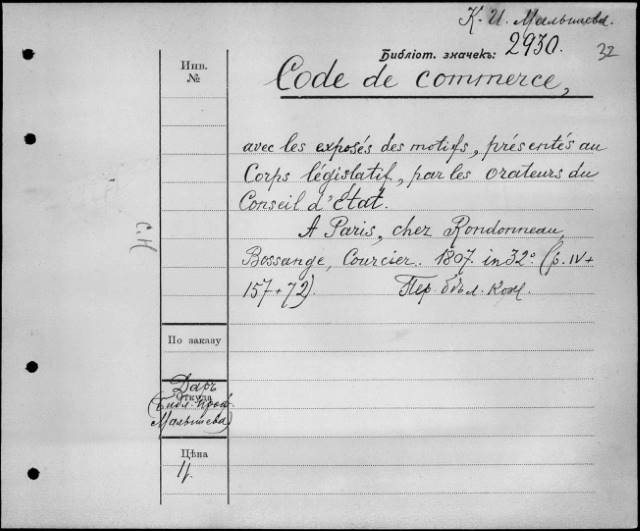 К. И. Малышева.
Библіот. значекъ: 2930.
32
Инв.
№
Code de commerce,
avec les exposés des motifs, présentés au
Corps législatif, par les orateurs du
Conseil d'état.
A Paris, chez Rondonneau,
Bossange, Courcier. 1807. in 32º (p. IV +
157 + 72).
Пер. бѣл. кож.
По заказу
Даръ
Откуда
(Библ. проф.
Малышева)
Цѣна